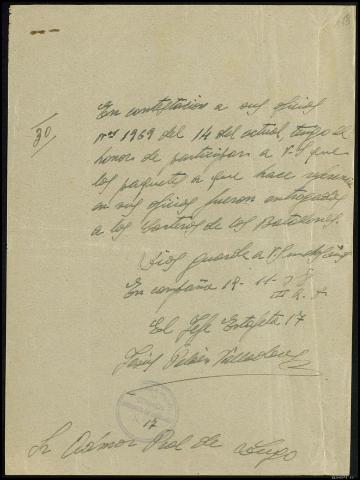 30/
En contestacion a sus oficios
nº 1969 del 14 del actual, tengo el
honor de participar a V.S que
los paquetes a que hace referencia
en sus oficios fueron entregados
a los Carteros de los Batallones.
Dios guarde a V.S muchos años
En campaña 18-11-38
III A. T.
El Jefe Estafeta 17
17
Sr Admor Pral de Lugo